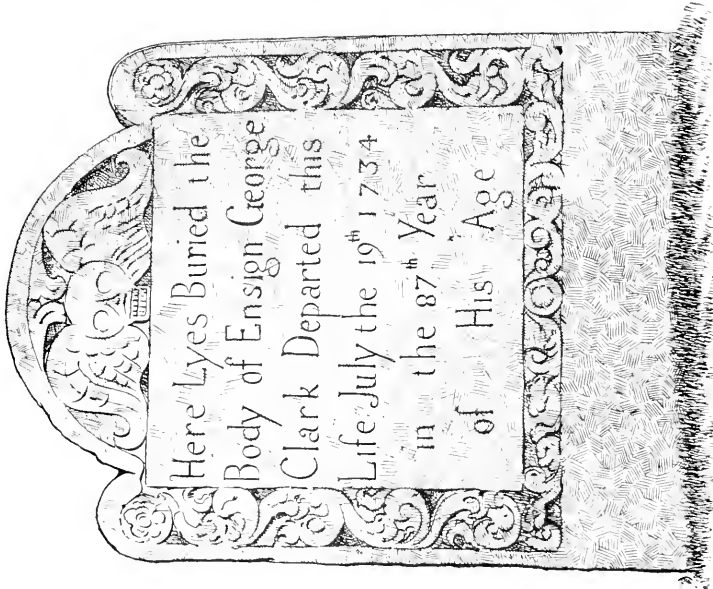 Here Lyes Buried the
Body of Ensign George
Clark Departed this
Life July the 19th 1734
in the 87th Year
of His Age